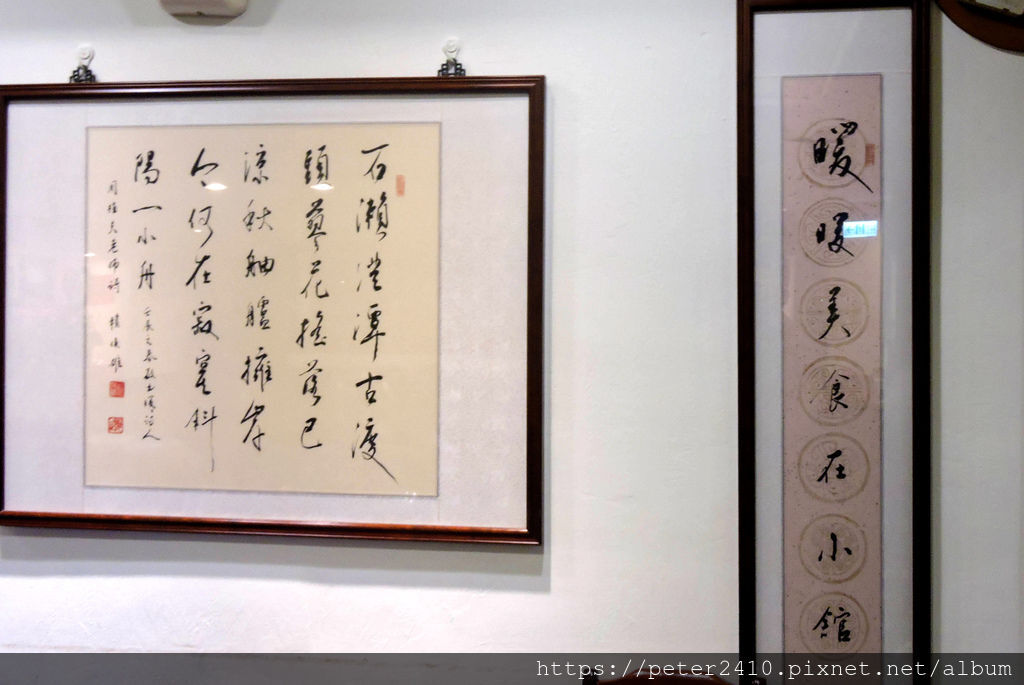 石瀨澄潭古渡
頭蓼花搖落已
涼秋舳艫擁岸
人何在寂寞斜
陽一小舟
壬辰之春
周植夫老師詩
暖暖美食在小館
https://peter2410.pixnet.net/album